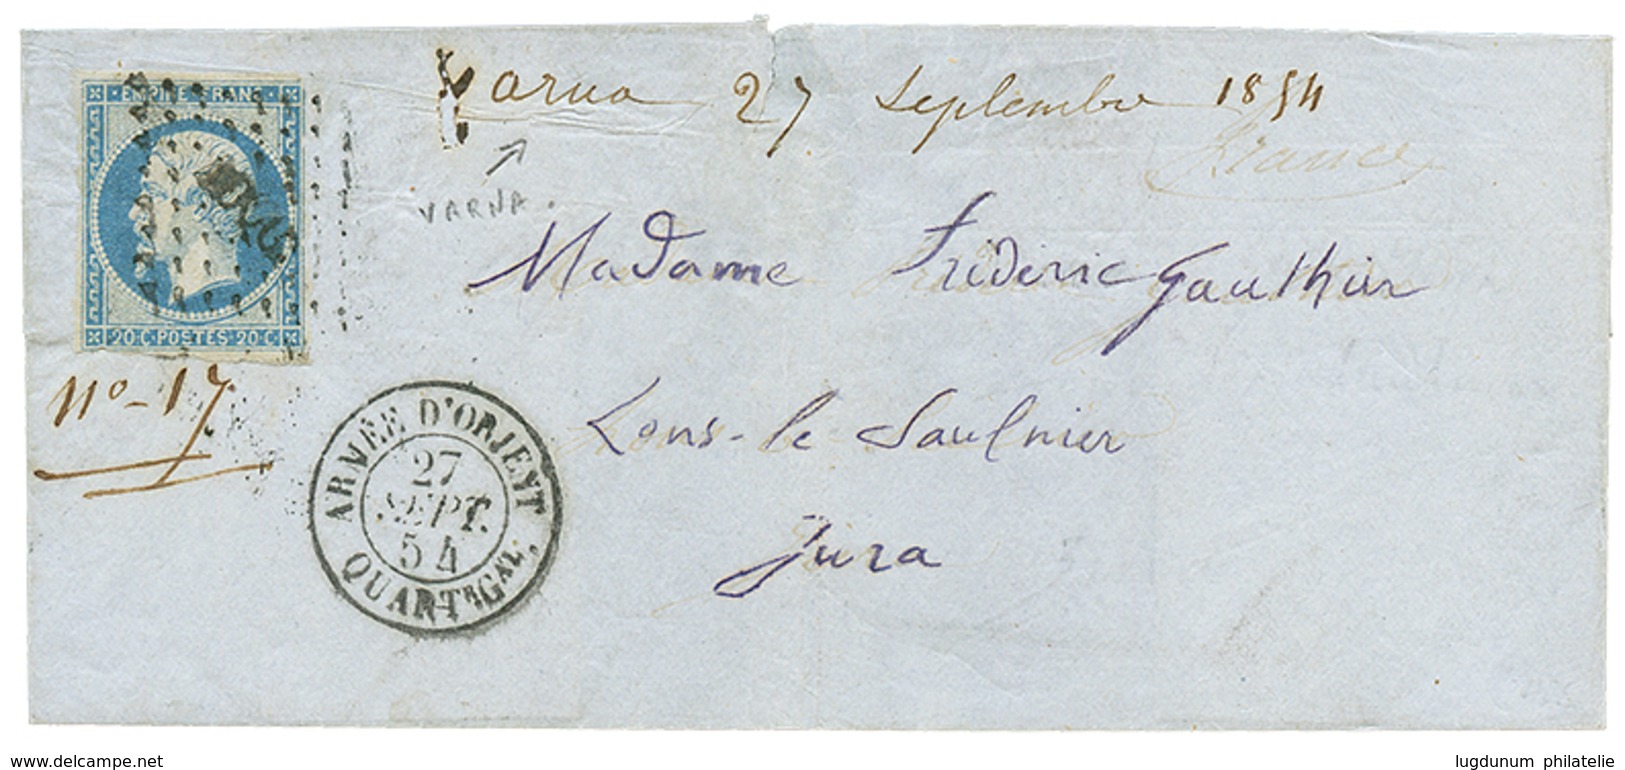 Varna 27 Septembre 1854
EMPIRE FRANC
France
VARNA.
Madame Fréderic Gauthier
20·C·POSTES·20·C
nº-17
Lons-le Saulnier
ARMÉE D'ORIENT
27
SEPT.
54
QUARTER GAL.
Jura
www.delcampe.net
lugdunum philatelie